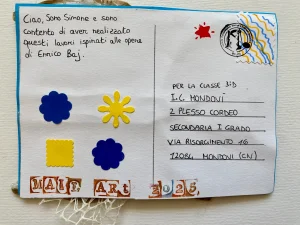 Ciao, Sono Simone e sono
contento di aver realizzato
questi lavori ispirati alle opere
di Enrico Baj.
PER LA CLASSE 3D
I.C MONDOVÌ
2 PLESSO CORDEO
SECONDARIA I GRADO
VIA RISORGIMENTO 16
12084 MONDOVÌ (CN)
MAIL ART 2025